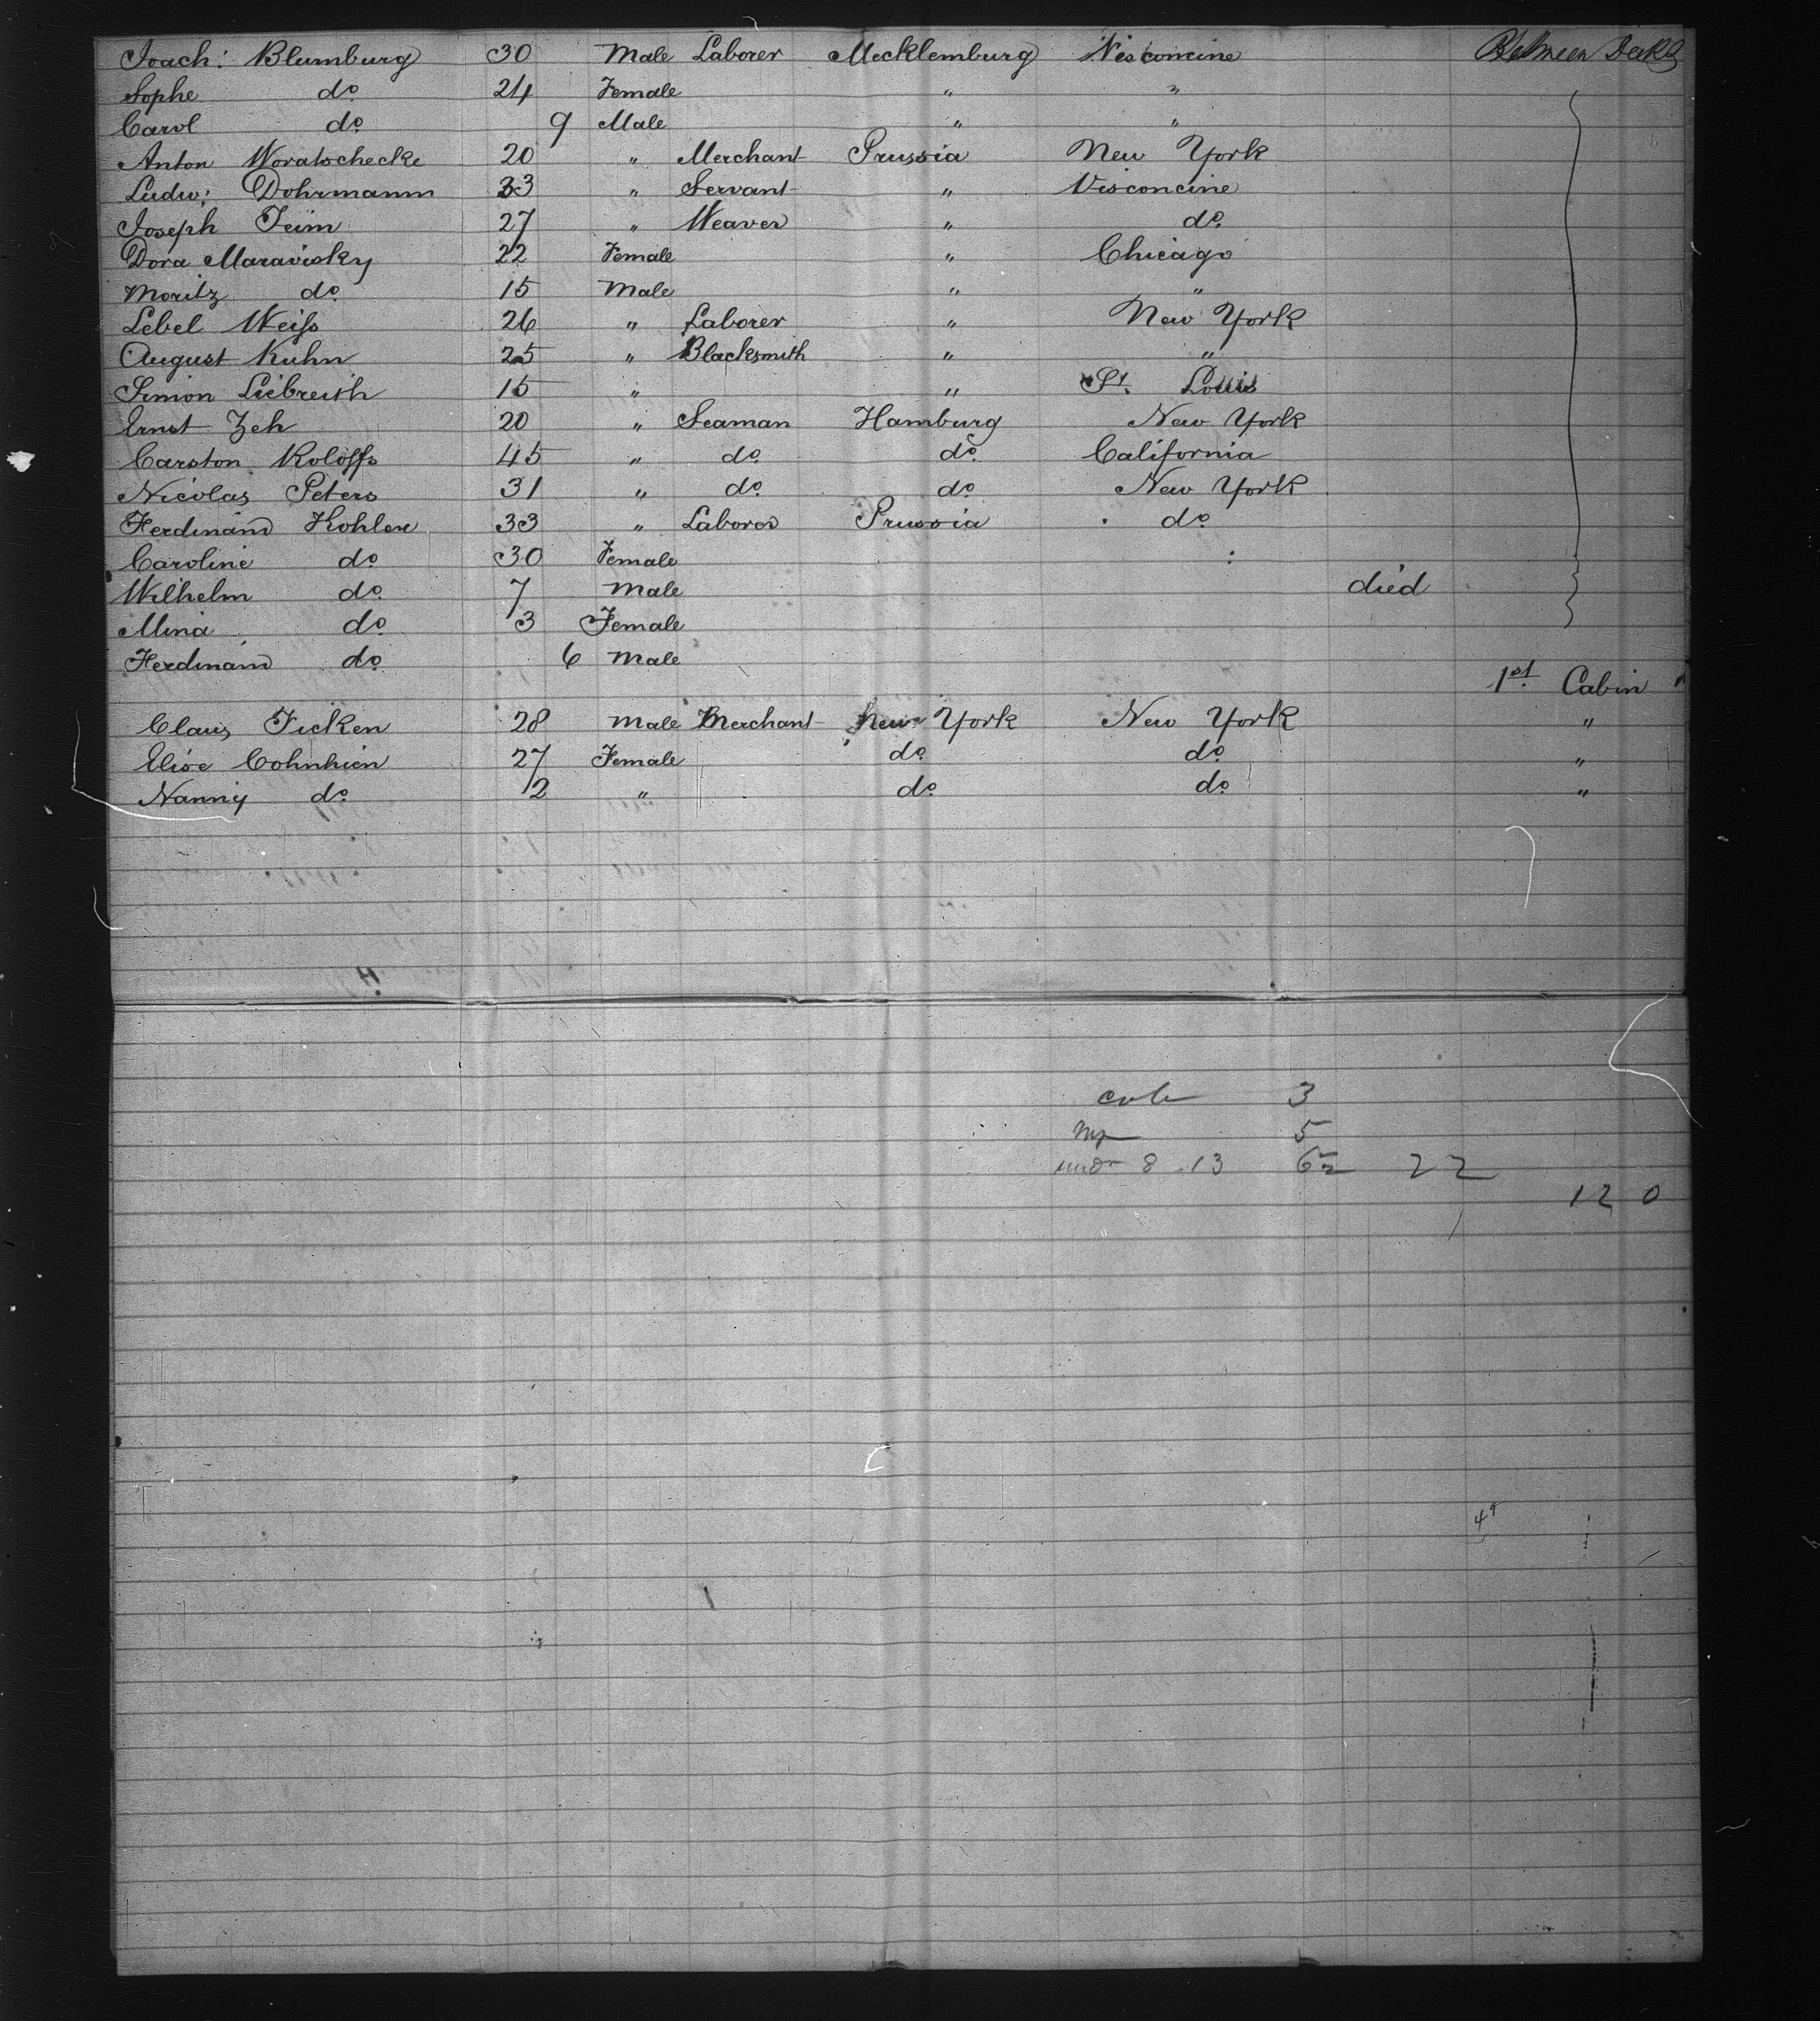 Joach: Blumburg 30 Male Laborer Mecklemburg Visconcine Between Decks
Sophe do 24 Female " "
Carol do 9 Male " "
Anton Woratschecke 20 " Merchant Prussia New York
Ludw: Dohrmann 33 " Servant " Visconcine
Joseph Feim 27 " Weaver " do
Dora Maravisky 22 Female " Chicago
Moritz do 15 Male " "
Lebel Weiſs 26 " Laborer " New York
August Kuhn 25 " Blacksmith " "
Simon Liebreich 15 " " St. Louis
Ernst Zeh 20 " Seaman Hamburg New York
Carston Roloffs 45 " do do California
Nicolas Peters 31 " do do New York
Ferdinand Kohler 33 " Laborer Prussia do
Caroline do 30 Female
Wilhelm do 7 Male died
Mina do 3 Female
Ferdinand do 6 Male
1st Cabin
Claus Ficken 28 Male Merchant New York New York "
Elise Cohnhien 27 Female do do "
Nanny do 12 " do do "
3
5
8 13 22
120